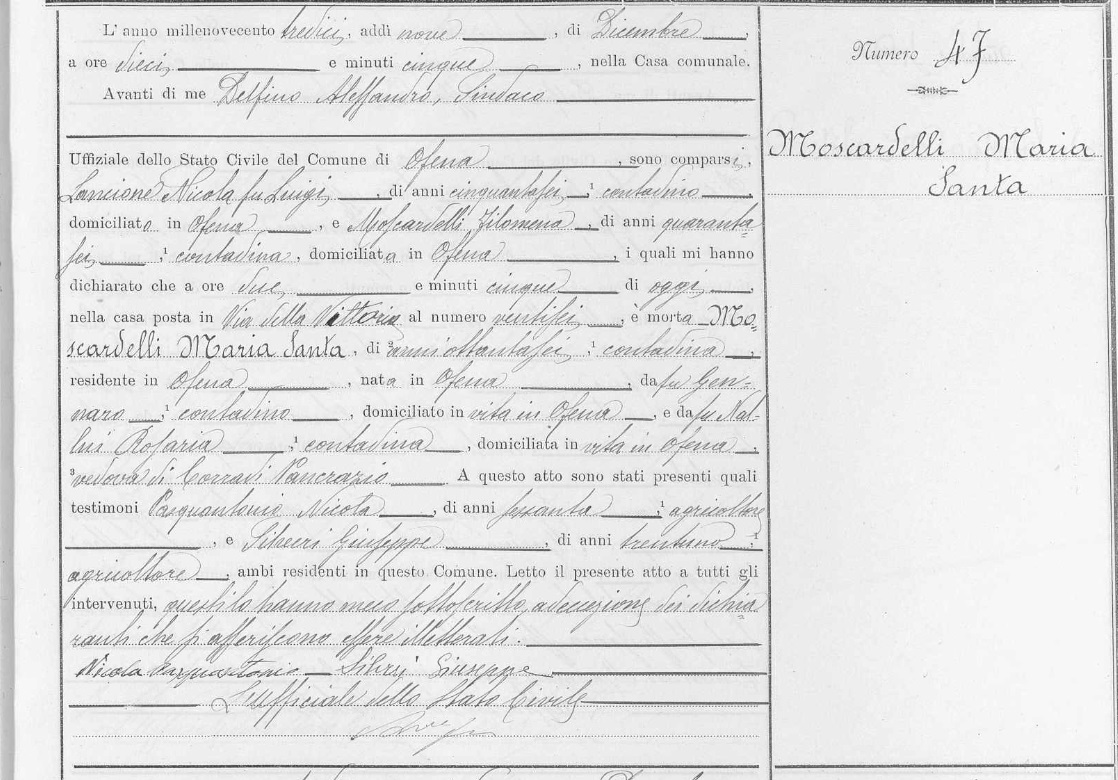 L' anno millenovecento tredici, addì nove, di Dicembre,
a ore dieci e minuti cinque, nella Casa comunale.
Avanti di me Delfino Alessandro, Sindaco
Uffiziale dello Stato Civile del Comune di Ofena, sono comparsi,
Lancione Nicola fu Luigi, di anni cinquantasei, ¹ contadino,
domiciliato in Ofena, e Moscardelli Filomena, di anni quaranta=
sei, ¹ contadina, domiciliata in Ofena, i quali mi hanno
dichiarato che a ore due e minuti cinque di oggi,
nella casa posta in Via della Vittoria al numero ventisei, è morta Mo=
scardelli Maria Santa, di ² anni ottantasei, ¹ contadina,
residente in Ofena, nata in Ofena, da fu Gen=
naro, ¹ contadino, domiciliato in vita in Ofena, e da fu
Rosaria, ¹ contadina, domiciliata in vita in Ofena,
³ vedova di Corradi Pancrazio. A questo atto sono stati presenti quali
testimoni Pasquantonio Nicola, di anni sessanta, ¹ agricoltore
, e Silveri Giuseppe, di anni trentuno, ¹
agricoltore, ambi residenti in questo Comune. Letto il presente atto a tutti gli
intervenuti, questi lo hanno meco sottoscritto, ad eccezione dei dichia=
ranti che si asseriscono essere illetterati.
Nicola Pasquantonio Silveri Giuseppe
L'uffiziale dello Stato Civile
Numero 47
Moscardelli Maria
Santa